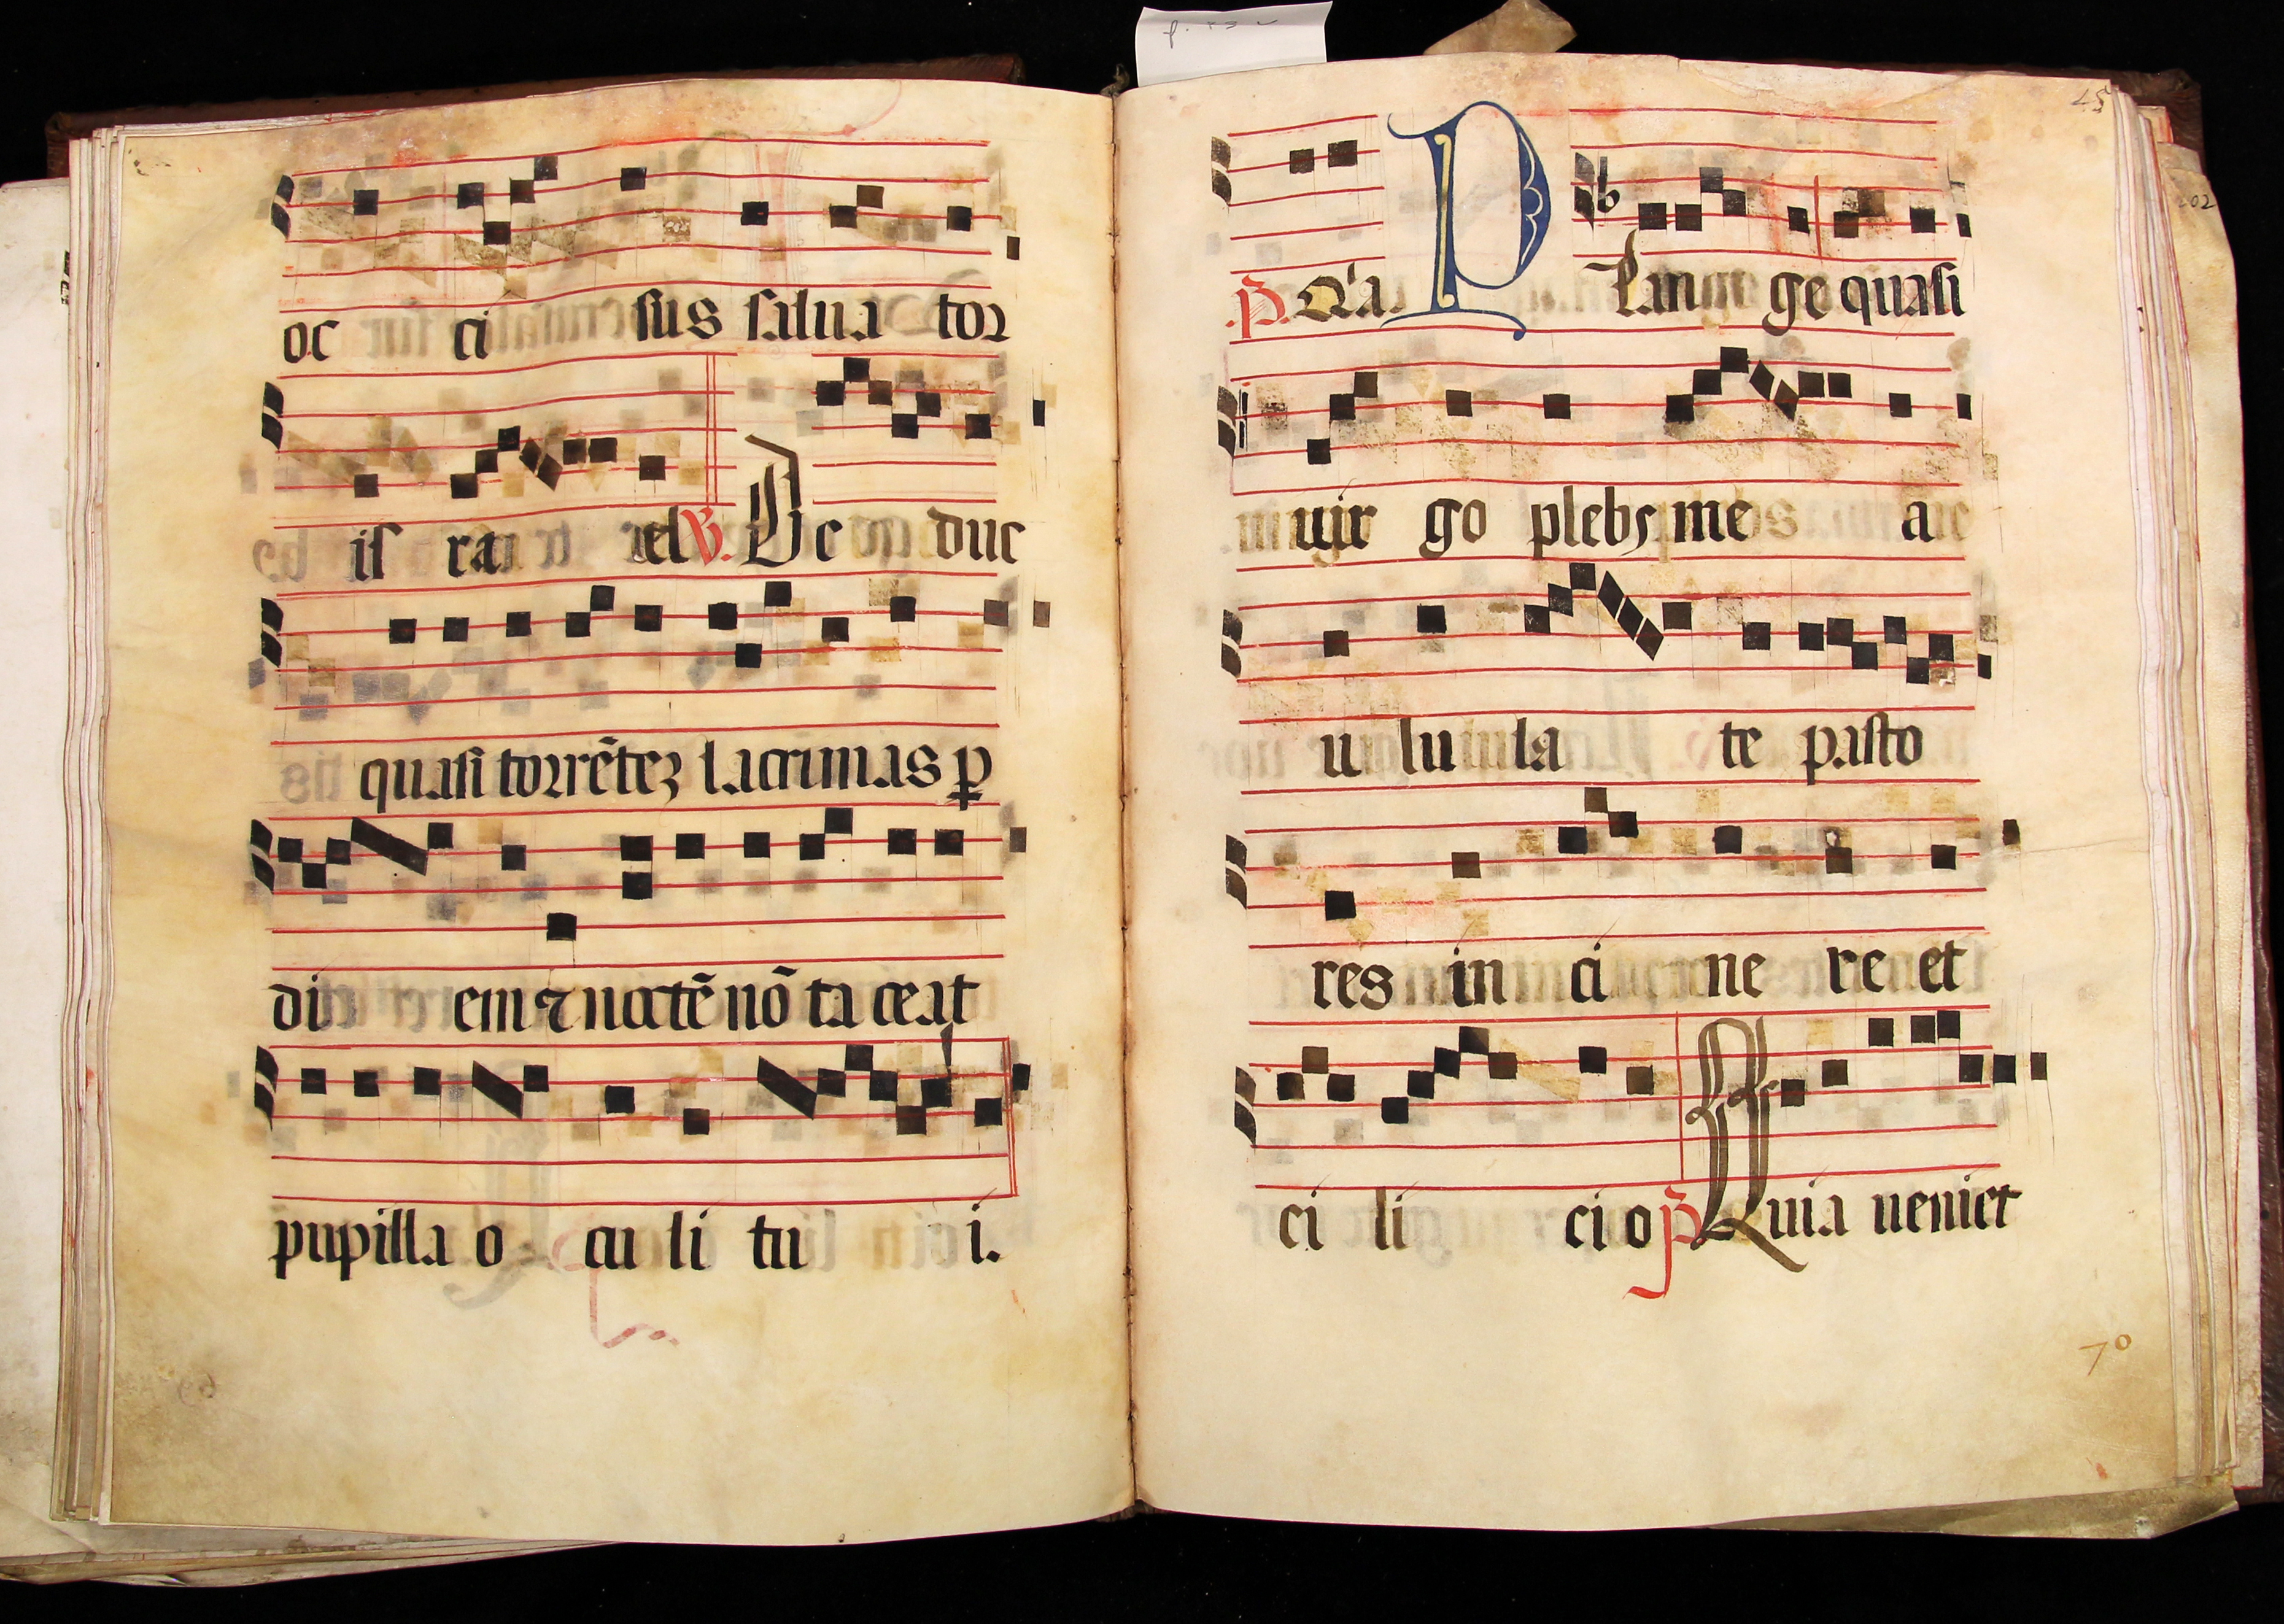 f. 53 v
oc ci sus salua tor
is ra el V. De duc
quasi torrẽtez lacrimas ꝑ
di em ⁊ noctẽ nõ ta ceat
pupilla o cu li tu i.
45
P. Q'a. P Lan ge quasi
uir go plebs me a
u lu la te pasto
res in ci ne re et
ci li ci o P Quia ueniet
70
202